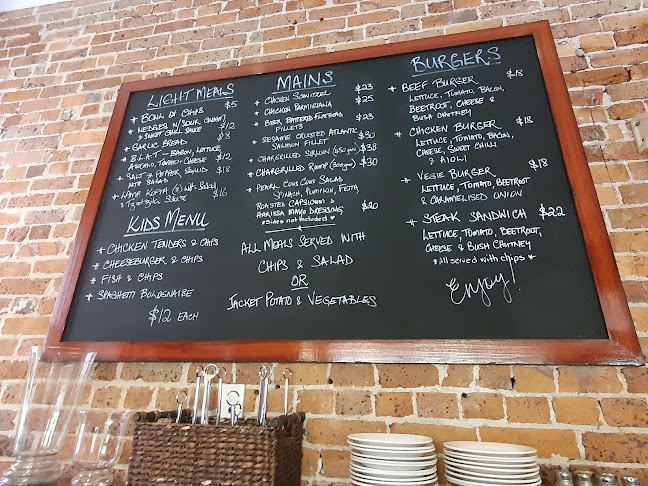 LIGHT MEALS
+ BOWL OF CHIPS $5
+ WEDGES W/SOUR CREAM $12
& SWEET CHILLI SAUCE
+ GARLIC BREAD $8
+ B.L.A.T - BACON, LETTUCE,
AVOCADO, TOMATO & CHEESE $12
+ SALT & PEPPER SQUID $18
WITH SALAD
+ LAMB KOFTA (3) WITH SALAD
& TZATZIKI SAUCE $16
KIDS MENU
+ CHICKEN TENDERS & CHIPS
+ CHEESEBURGER & CHIPS
+ FISH & CHIPS
+ SPAGHETTI BOLOGNAISE
$12 EACH
MAINS
+ CHICKEN SCHNITZEL $23
+ CHICKEN PARMIGIANA $25
+ BEER BATTERED FLATHEAD $23
FILLETS
+ SESAME CRUSTED ATLANTIC $30
SALMON FILLET
+ CHARGRILLED SIRLOIN (450gm) $38
+ CHARGRILLED RUMP (300gm) $30
+ PEARL COUS COUS SALAD
SPINACH, PUMPKIN, FETA,
ROASTED CAPSICUM & $20
HARISSA MAYO DRESSING
*Sides not Included*
ALL MEALS SERVED WITH
CHIPS & SALAD
OR
JACKET POTATO & VEGETABLES
BURGERS
+ BEEF BURGER $18
LETTUCE, TOMATO, BACON,
BEETROOT, CHEESE &
BUSH CHUTNEY
+ CHICKEN BURGER $18
LETTUCE, TOMATO, BACON,
CHEESE, SWEET CHILLI
& AIOLI
+ VEGIE BURGER $18
LETTUCE, TOMATO, BEETROOT
& CARAMELISED ONION
+ STEAK SANDWICH $22
LETTUCE, TOMATO, BEETROOT,
CHEESE & BUSH CHUTNEY
*all served with chips*
Enjoy!